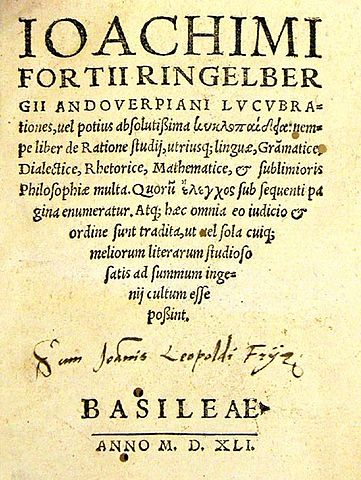 IOACHIMI
FORTII RINGELBER
GII ANDOVERPIANI LVCVBRA-
tiones, uel potius absolutißima κυκλοπαιδεια: nem-
pe liber de Ratione studij, utriusq; linguæ, Grãmatice,
Dialectice, Rhetorice, Mathematice, & sublimioris
Philosophiæ multa. Quorũ ἔλεγχος sub sequenti pa
gina enumeratur. Atq; hæc omnia eo iudicio &
ordine sunt tradita, ut uel sola cuiq;
meliorum literarum studioso
satis ad summum inge-
nij cultum esse
poßint.
Sum Joannis Leopoldi
BASILEAE
ANNO M. D. XLI.